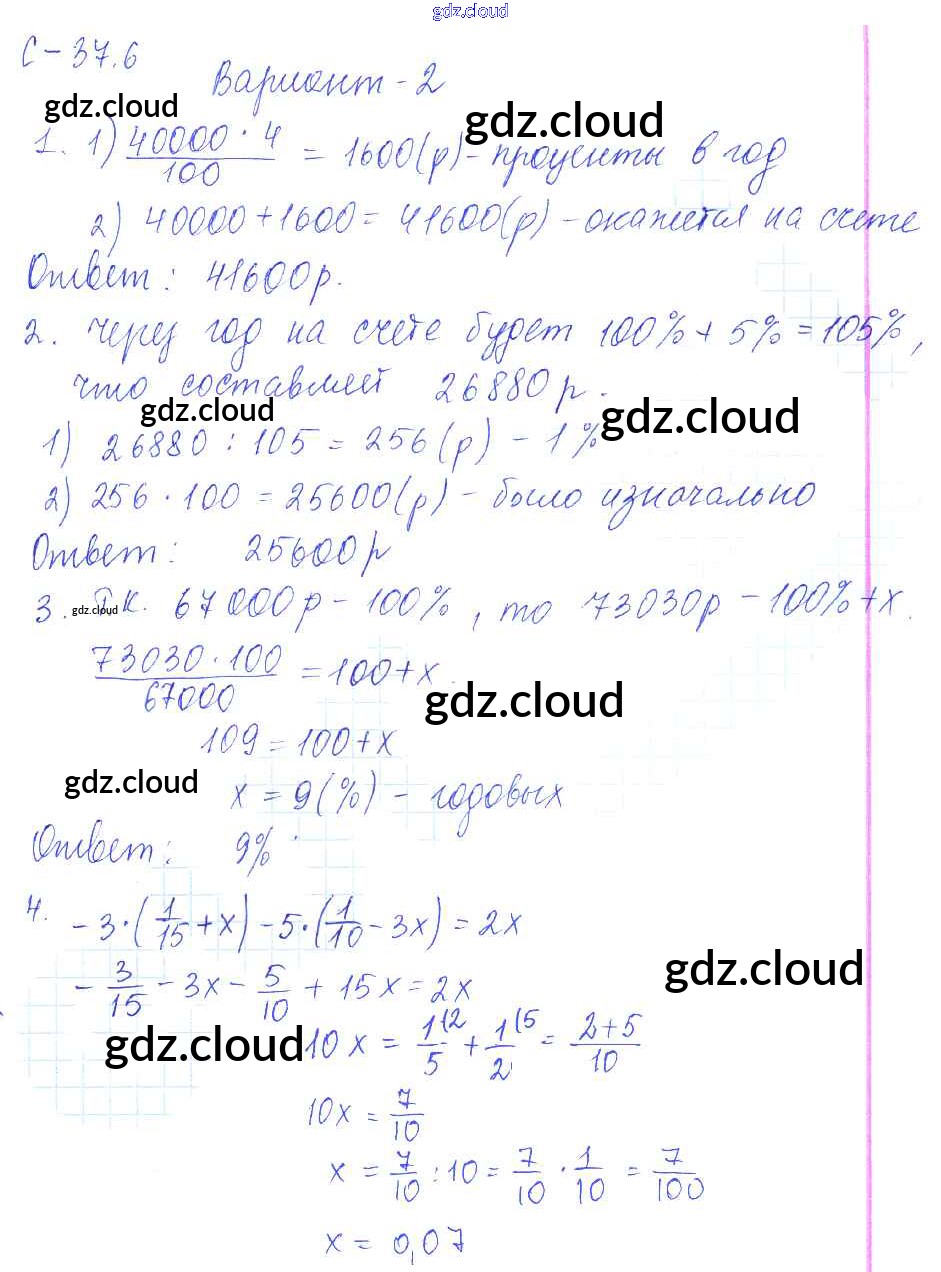 gdz.cloud
С-37.6
Вариант-2
gdz.cloud
gdz.cloud
1. 1) 40000·4/100 = 1600(р)-проценты в год
2) 40000+1600=41600(р)-окажется на счете
Ответ: 41600р.
2. Через год на счете будет 100%+5%=105%,
что составляет 26880р.
gdz.cloud
gdz.cloud
1) 26880:105=256(р)-1%
2) 256·100=25600(р)-было изначально
Ответ: 25600р
3. Т.К. 67000р-100%, то 73030р-100%+x.
gdz.cloud
73030·100/67000 = 100+x.
gdz.cloud
109=100+x
gdz.cloud
x=9(%)-годовых
Ответ: 9%
4. -3·(1/15+x)-5·(1/10-3x)=2x
gdz.cloud
-3/15-3x-5/10+15x=2x
gdz.cloud
10x=1/5(2+1/2(5=2+5/10
10x=7/10
x=7/10:10=7/10·1/10=7/100
x=0,07